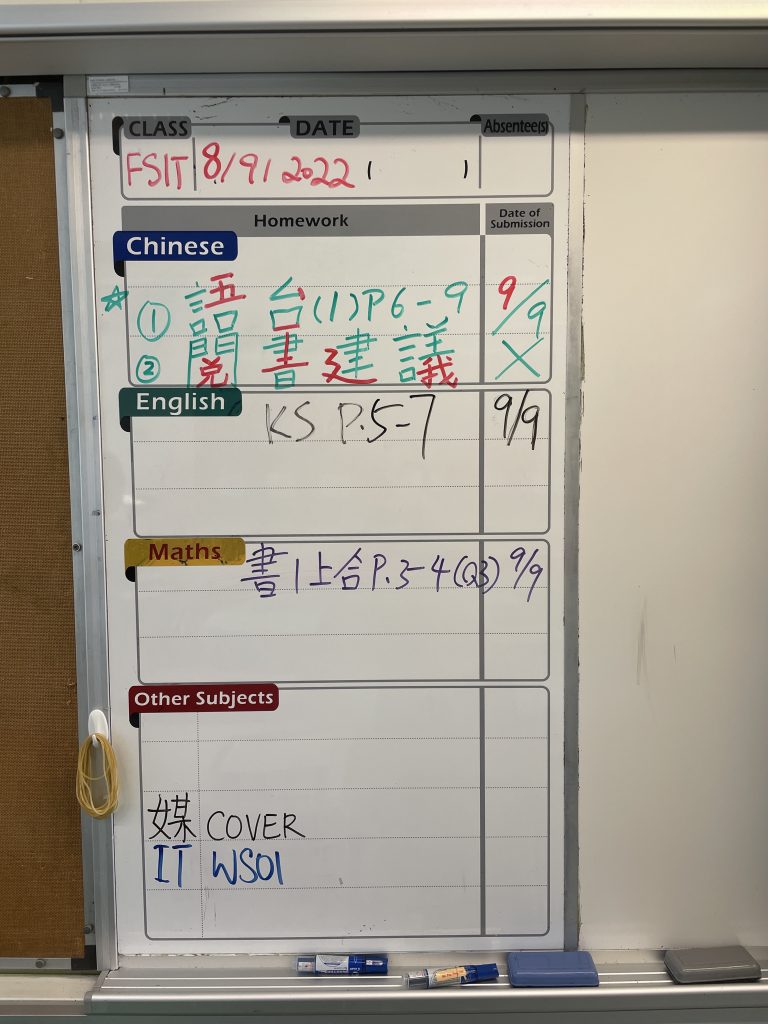 CLASS DATE Absentee(s)
FSIT 8/9/2022 ( )
Homework Date of Submission
Chinese
☆ ① 語 合(1)P6-9 9/9
② 閱書建議 X
English
KS P.5-7 9/9
Maths
書1上合P.3-4(Q3) 9/9
Other Subjects
媒 COVER
IT WS01